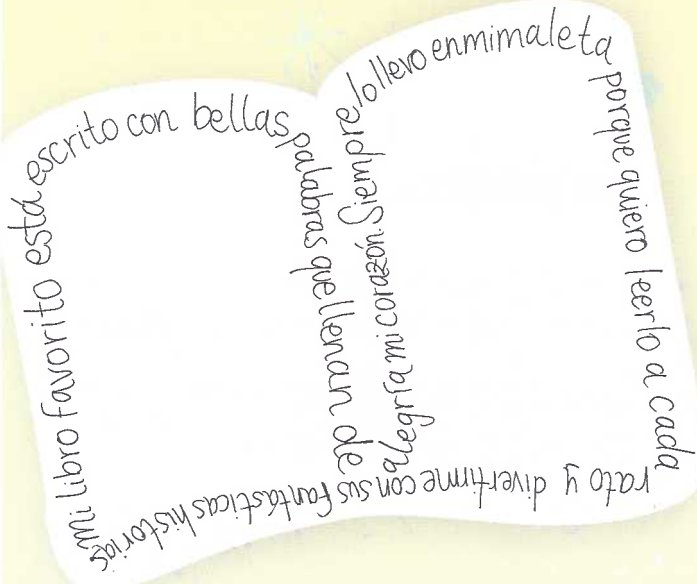 mi libro favorito está escrito con bellas palabras que llenan de alegría mi corazón. Siempre lo llevo en mi maleta porque quiero leerlo a cada rato y divertirme con sus fantásticas historias